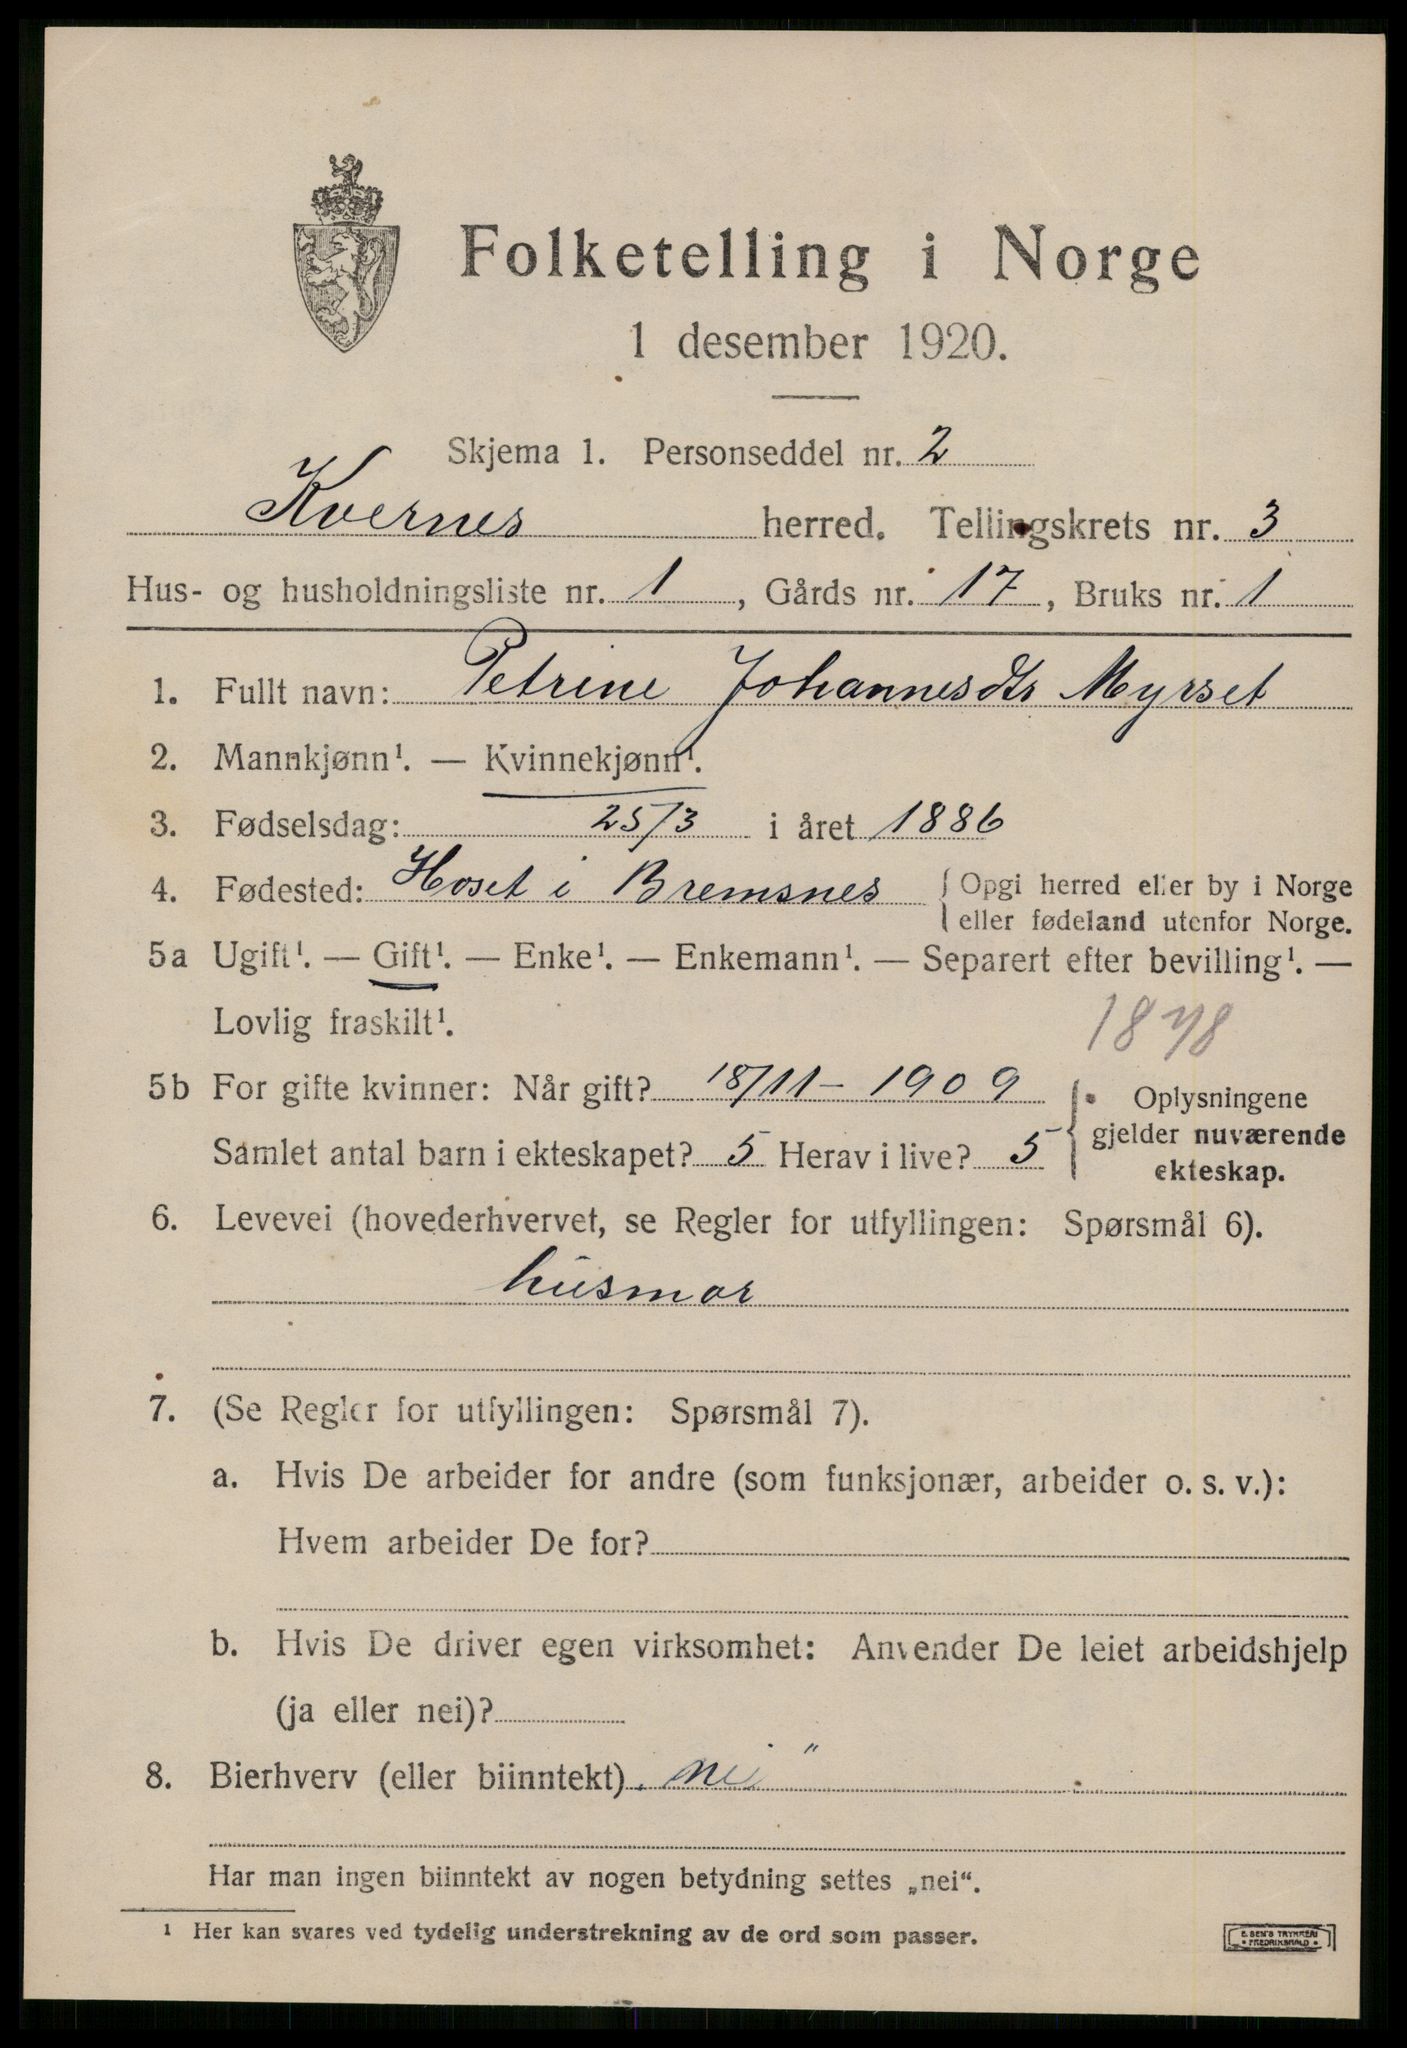 Folketelling i Norge
1 desember 1920.
Skjema 1. Personseddel nr. 2
Kvernes herred. Tellingskrets nr. 3
Hus- og husholdningsliste nr. 1, Gårds nr. 17, Bruks nr. 1
1. Fullt navn: Petrine Johannesdtr Myrset
2. Mannkjønn¹. — Kvinnekjønn¹.
3. Fødselsdag: 25/3 i året 1886
4. Fødested: Hoset i Bremsnes { Opgi herred eller by i Norge
eller fødeland utenfor Norge.
5a Ugift¹. — Gift¹. — Enke¹. — Enkemann¹. — Separert efter bevilling¹. —
Lovlig fraskilt¹.
1878
5b For gifte kvinner: Når gift? 18/11 – 1909
Samlet antal barn i ekteskapet? 5 Herav i live? 5
Oplysningene
gjelder nuværende
ekteskap.
6. Levevei (hovederhvervet, se Regler for utfyllingen: Spørsmål 6).
husmor
7. (Se Regler for utfyllingen: Spørsmål 7).
a. Hvis De arbeider for andre (som funksjonær, arbeider o. s. v.):
Hvem arbeider De for?
b. Hvis De driver egen virksomhet: Anvender De leiet arbeidshjelp
(ja eller nei)?
8. Bierhverv (eller biinntekt) „nei“
Har man ingen biinntekt av nogen betydning settes „nei“.
¹ Her kan svares ved tydelig understrekning av de ord som passer.
E. SEM'S TRYKKERI
• FREDRIKSHALD •